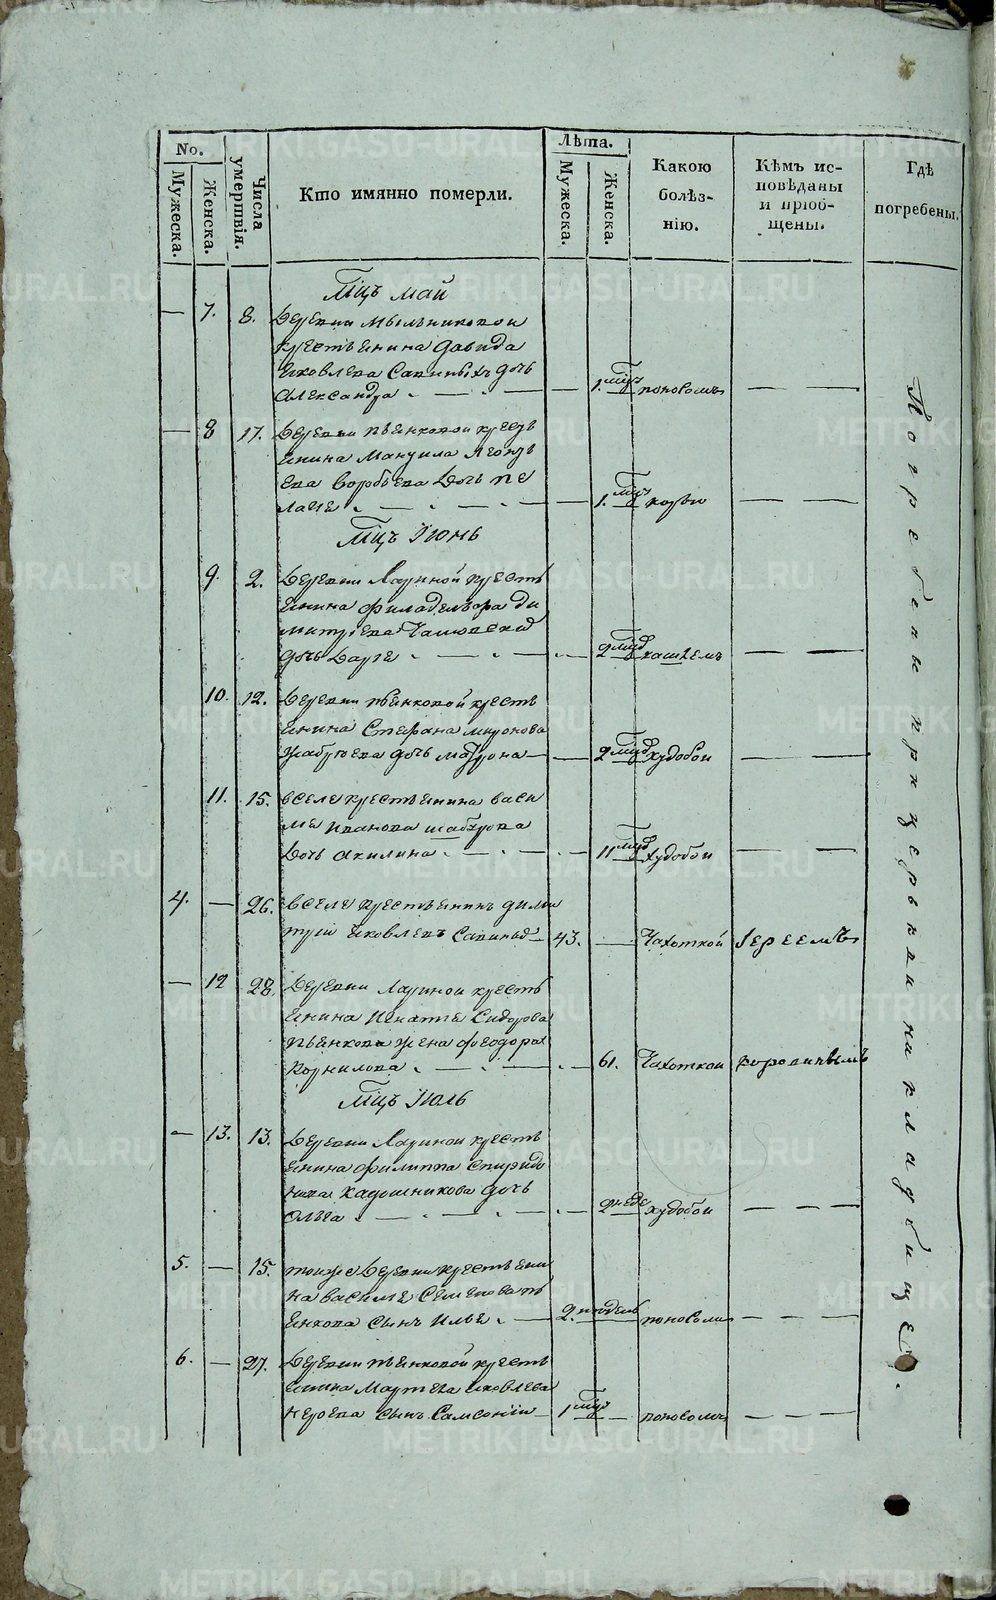 No.
Мужеска.
Женска.
Числа умертвія.
Кто имянно померли.
Лѣта.
Мужеска.
Женска.
Какою болѣз-
нію.
Кѣмъ ис-
повѣданы
и пріоб-
щены.
Гдѣ
погребены.
Мцъ май
— 7. 8. Деревни Мыльниковой
крестьянина Давида
Яковлева Сапиныхъ дочь
Александра — — 1. мцъ поносомъ — —
— 8 17. Деревни Пьянковой кресть
янина Мануила Леонть
ева Воробьева дочь Пе
лагея — 1. мцъ корью — —
Мцъ Іюнь
9. 2. Деревни Лариной кресть
янина Филадельфа Ди
митріева
дочь Дарья — 2 мцъ кашлемъ — —
10. 12. Деревни Пьянковой кресть
янина Стефана Миронова
дочь Матрона — — 2 мцъ худобой — —
11. 15. в селе крестьянина Васи
лья Иванова
дочь Акилина — 11 мцъ худобой — —
4. — 26. в селе крестьянинъ Дими
трій Яковлевъ Сапиныхъ — 43. — Чахоткой Іереемъ
— 12 28. Деревни Лариной кресть
янина Игнатья Сидорова
Пьянкова жена Феодора
Корнилова — 61. Чахоткой
Мцъ Іюль
— 13. 13. Деревни Лариной кресть
янина Филиппа Спиридо
нова Кадошникова дочь
Ольга — худобой — — —
5. — 15. тоиже Деревни крестьяни
на Василья Семенова Пь
янкова сынъ Илья — 2. недель поносомъ — — —
6. — 27. Деревни Пьянковой кресть
янина Яковлева
сынъ Самсоній — 1 мцъ — поносомъ — — —
Погребены при церькви на кладбище.
METRIKI.GASO-URAL.RU